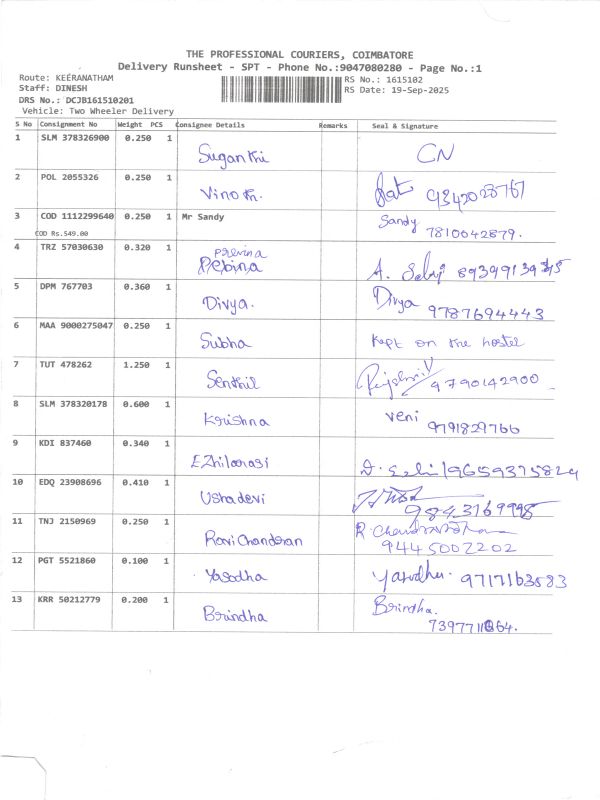 THE PROFESSIONAL COURIERS, COIMBATORE
Delivery Runsheet - SPT - Phone No.:9047080280 - Page No.:1
Route: KEERANATHAM RS No.: 1615102
Staff: DINESH RS Date: 19-Sep-2025
DRS No.: DCJB161510201
Vehicle: Two Wheeler Delivery
S No Consignment No Weight PCS Consignee Details Remarks Seal & Signature
1 SLM 378326900 0.250 1 Suganthi CN
2 POL 2055326 0.250 1 Vinoth. 9342023767
3 COD 1112299640 0.250 1 Mr Sandy Sandy
COD Rs.549.00 7810042879.
4 TRZ 57030630 0.320 1 Previna
A. 
5 DPM 767703 0.360 1 Divya. Divya 9787694443
6 MAA 9000275047 0.250 1 Subha Kept on the hostel
7 TUT 478262 1.250 1 Senthil 9790142900
8 SLM 378320178 0.600 1 Krishna Veni
9791829766
9 KDI 837460 0.340 1 Ezhilarasi 9659375824
10 EDQ 23908696 0.410 1 Ushadevi
11 TNJ 2150969 0.250 1 Ravi Chandran R.
9445002202
12 PGT 5521860 0.100 1 Yasodha Yasodha. 9717163583
13 KRR 50212779 0.200 1 Brindha Brindha.